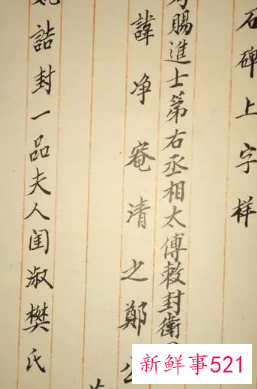 石碑上字样
賜進士第右丞相太傅敕封衛
諱净菴清之鄭公
誥封一品夫人閨淑樊氏
新鲜事521